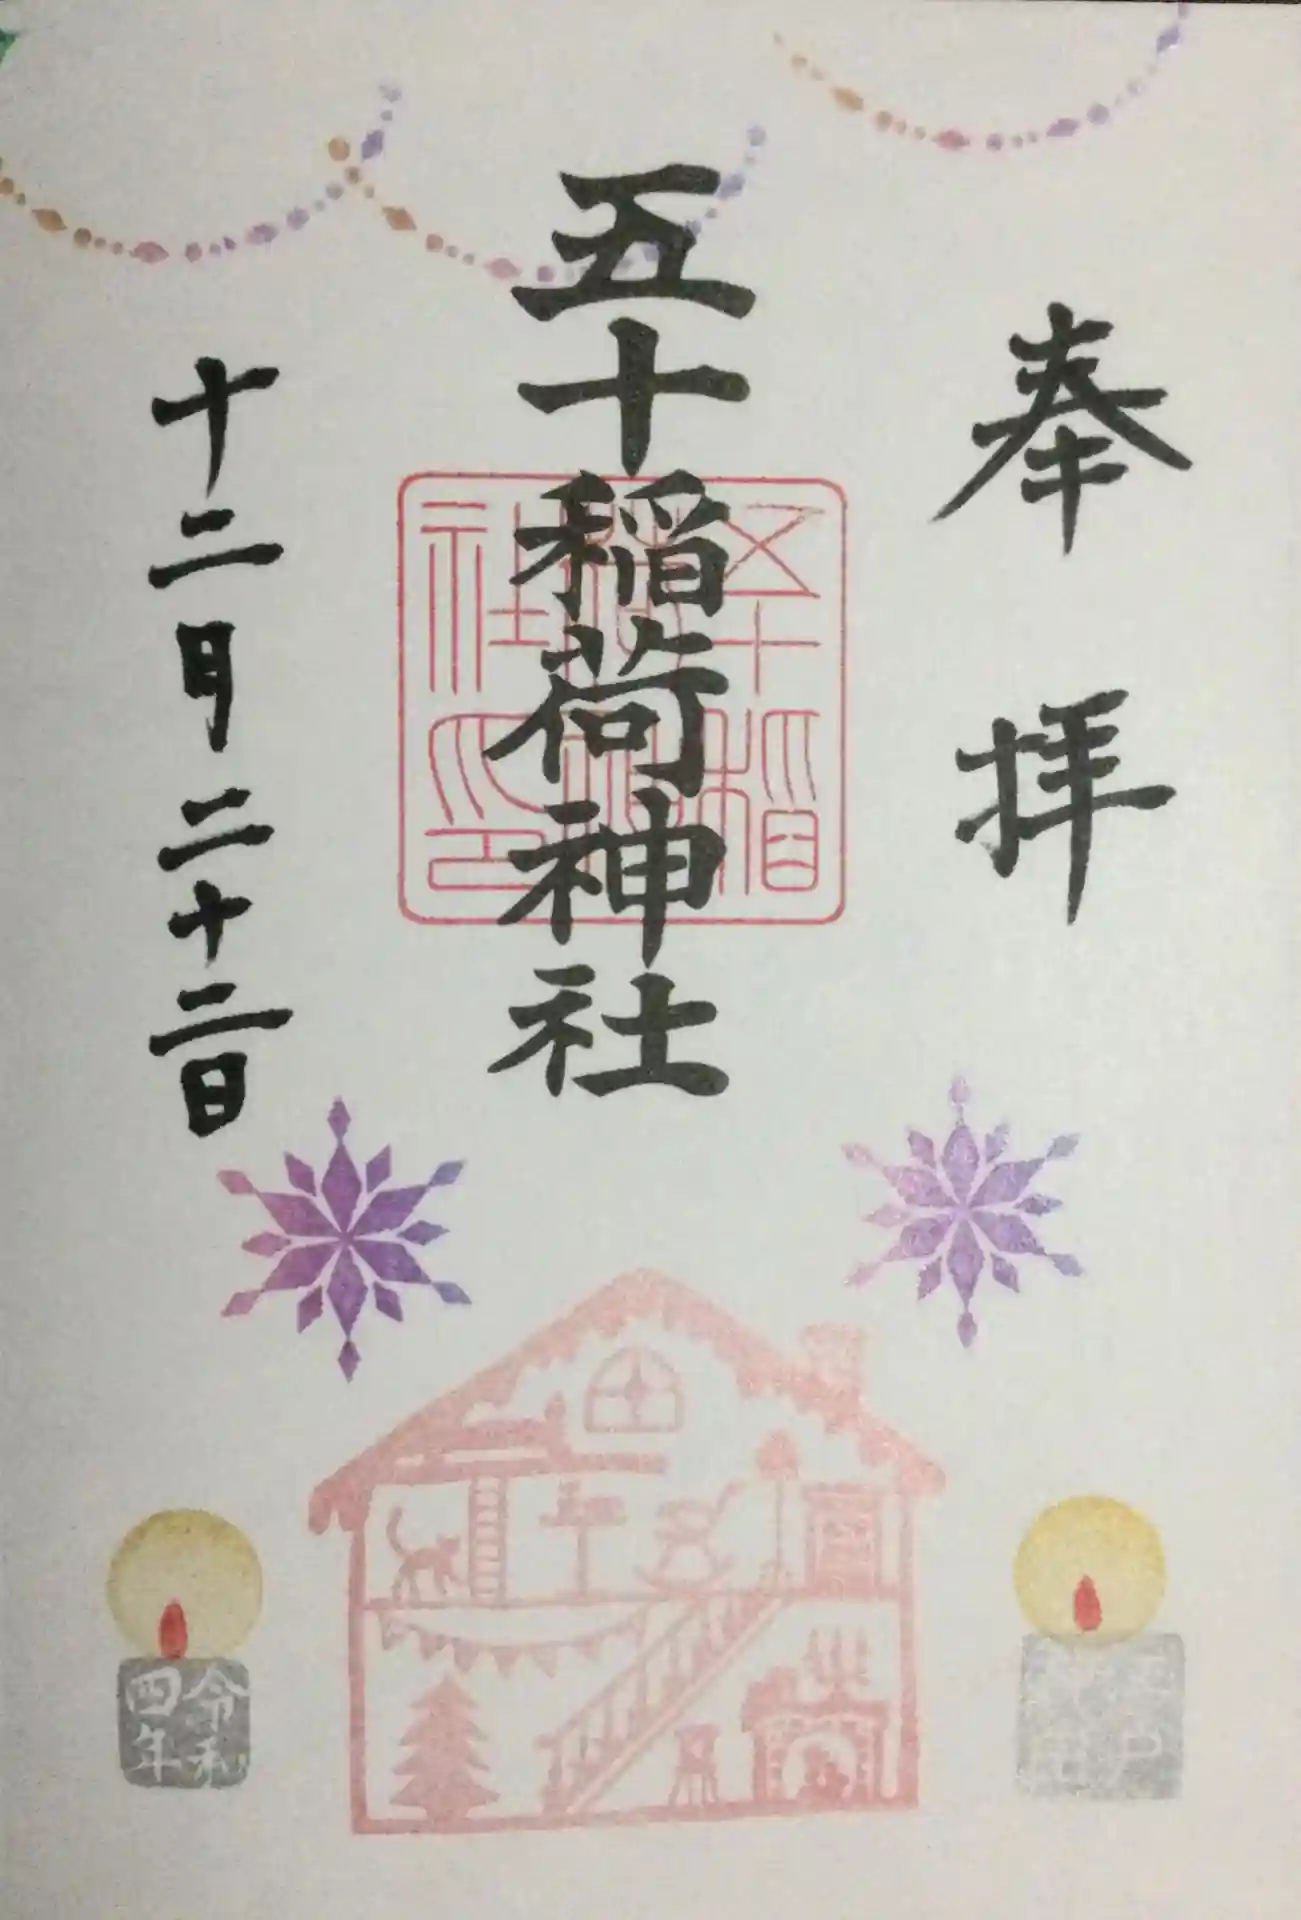 奉拝
五十稲荷神社
五十稲荷神社印
十二月二十二日
令和四年